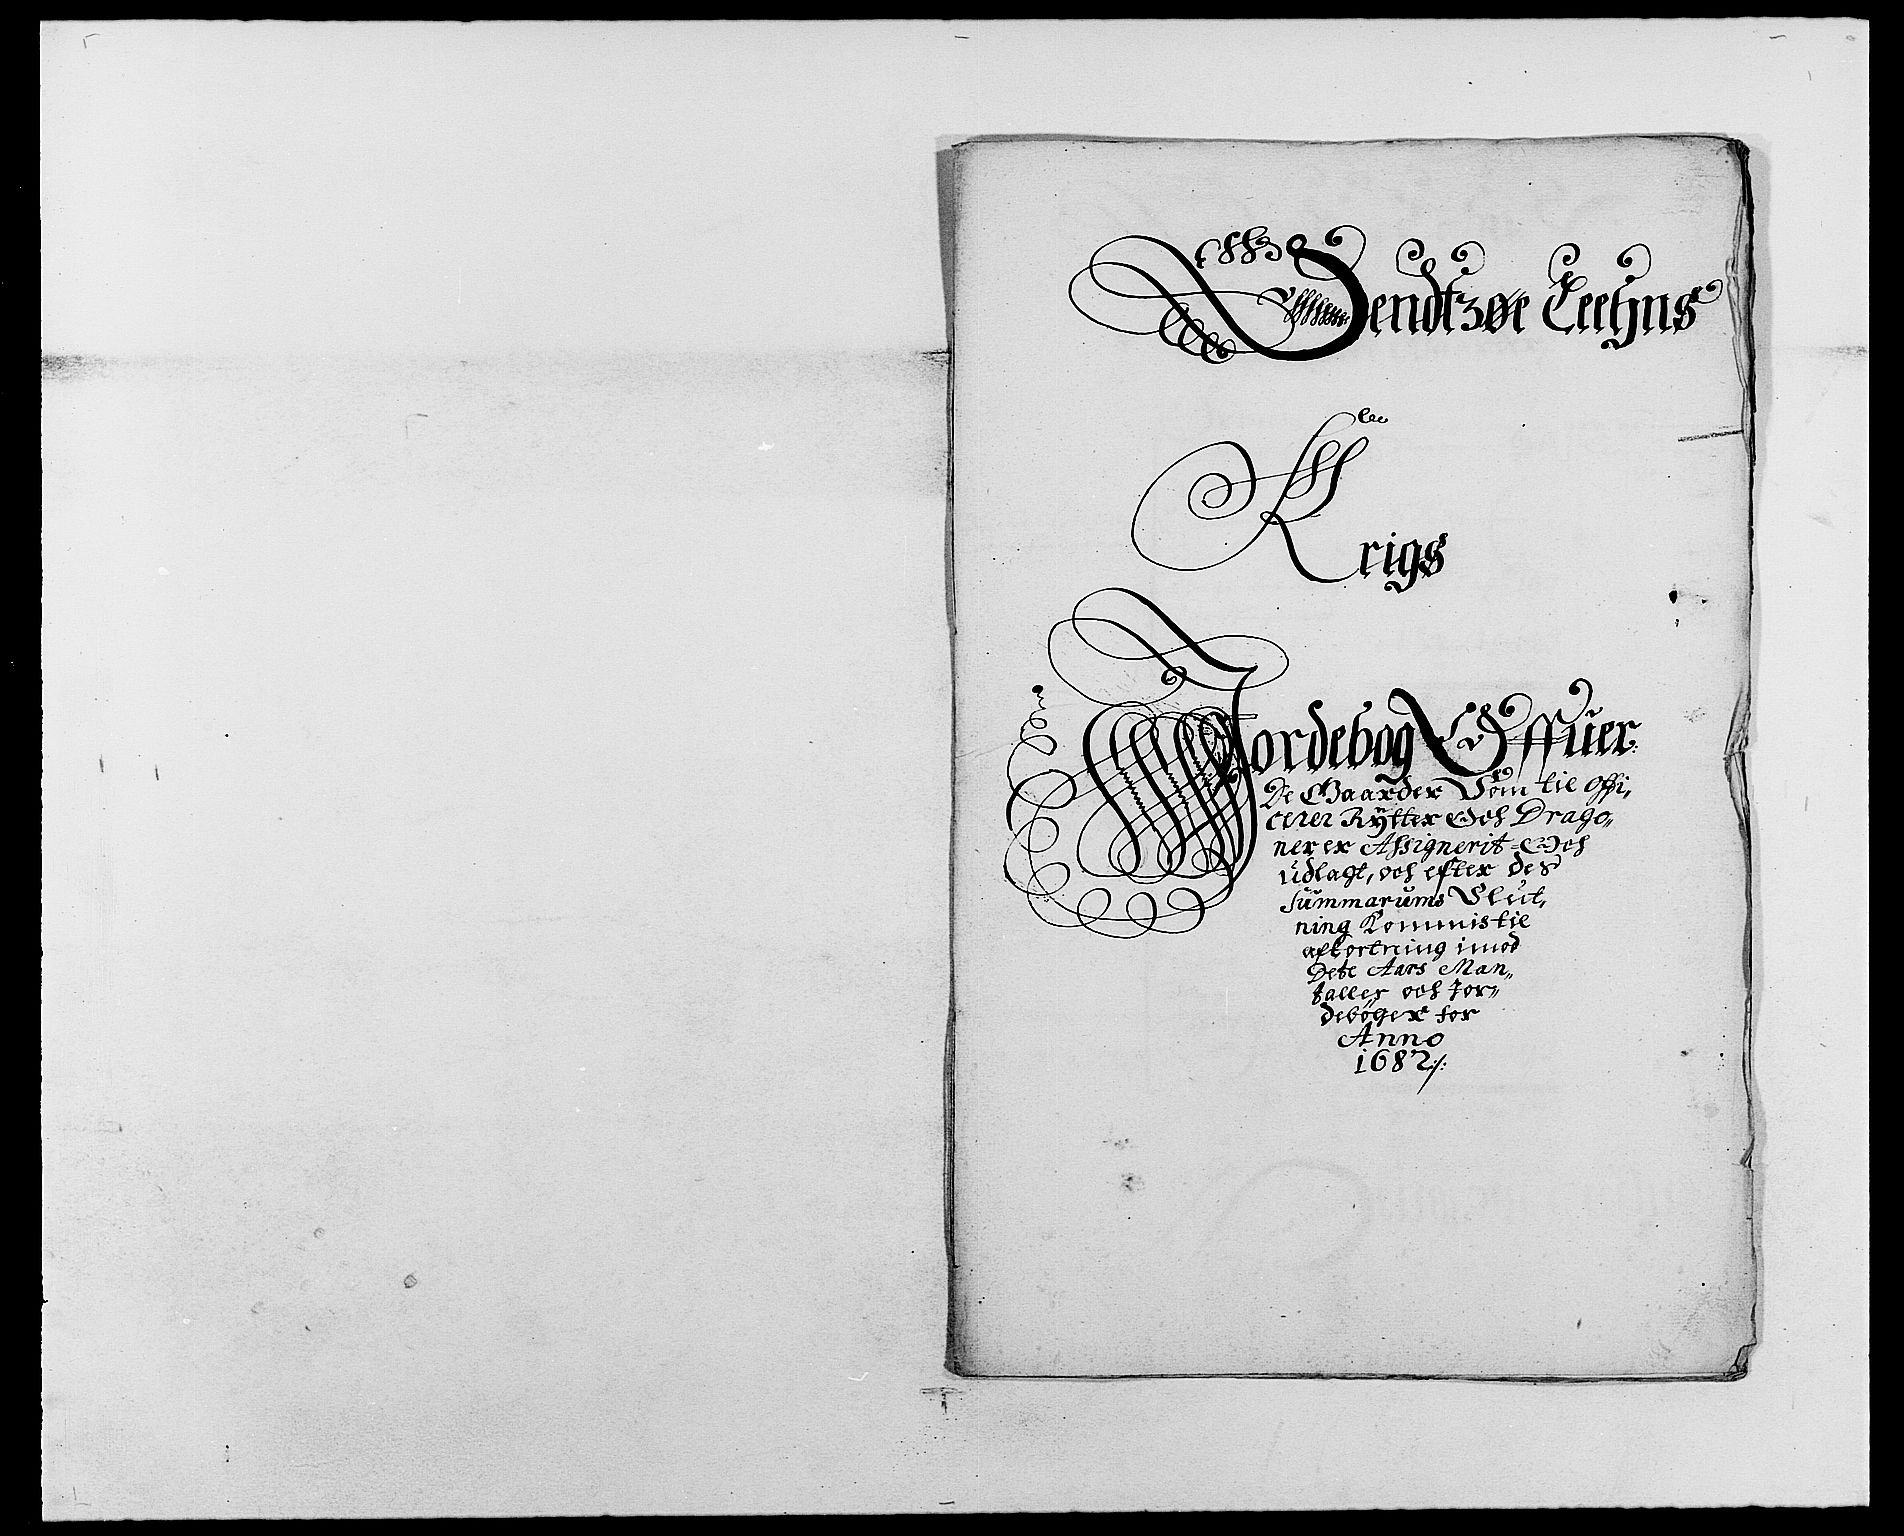 Jendtzøe Leehns
Krigs
Jordebog Offuer
De Gaarder Som til Offi,
cerer Rÿtter Och Drago,,
ner er Assignerit Och
udlagt, och efter des
Summarums Slut,
ning Kommis til
afkortning imod
Dete Aars Man,,
taller och Jor,,
debøger for
Anno
1682 ./.